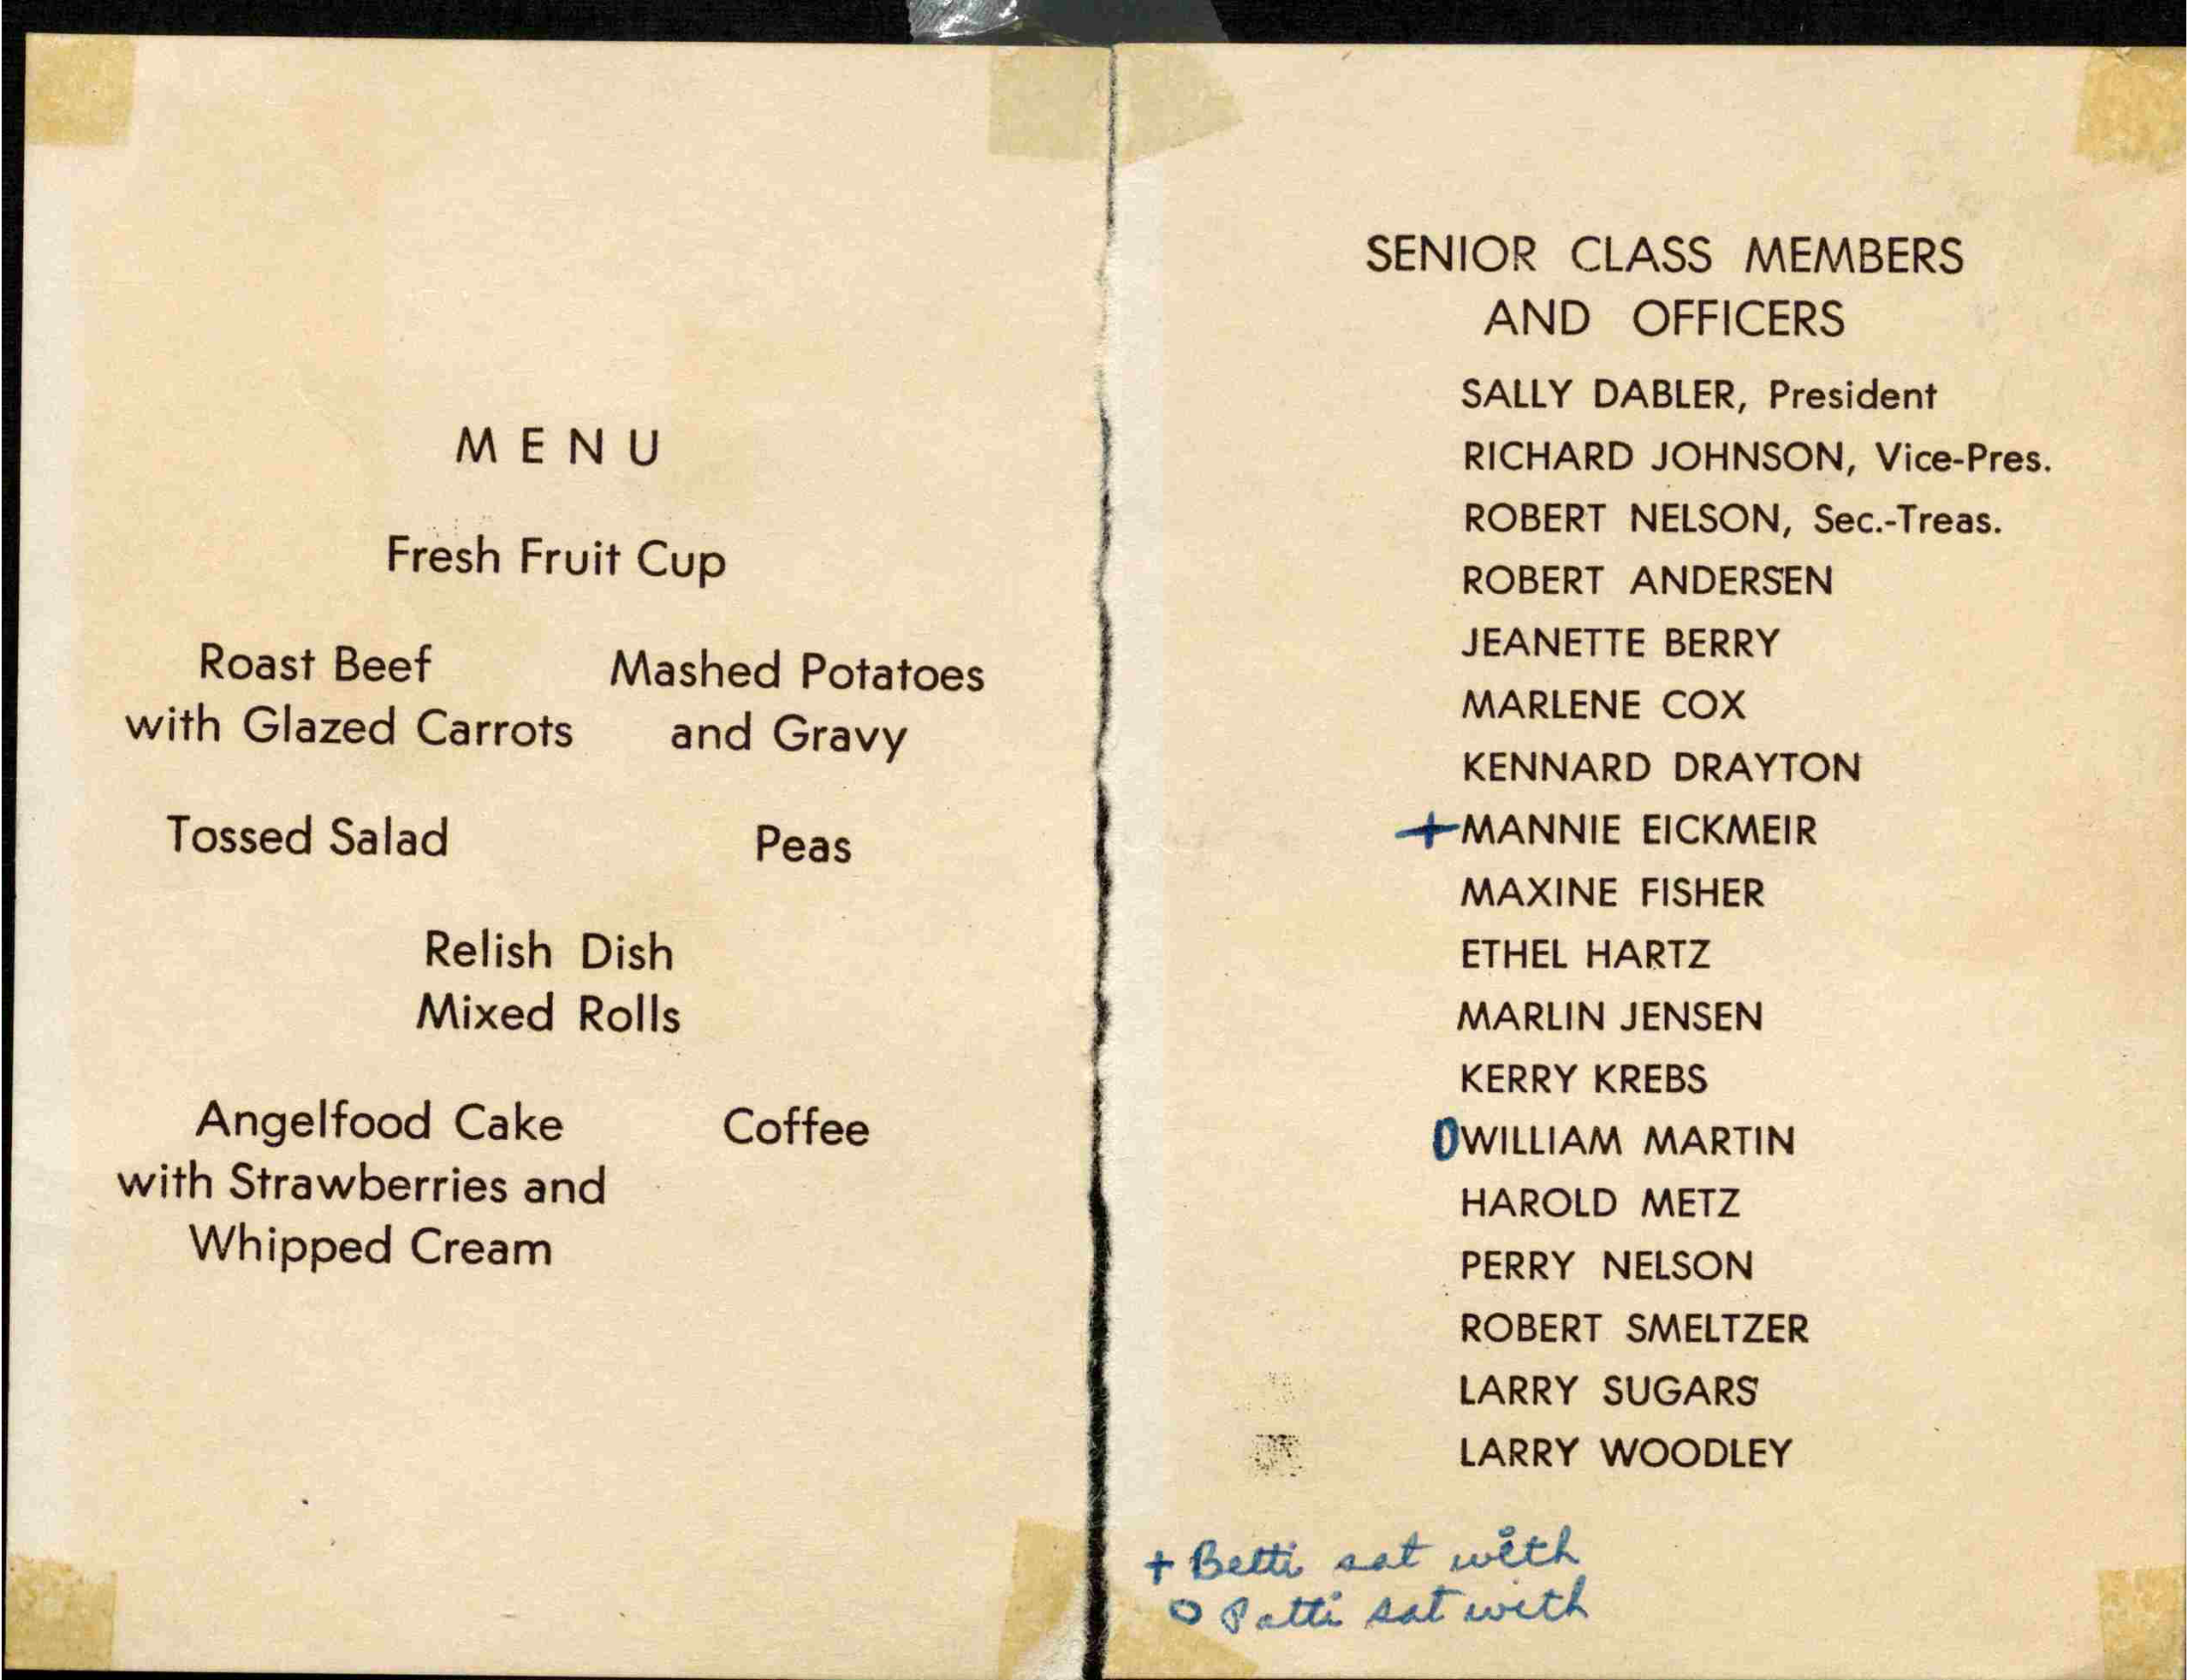 MENU
Fresh Fruit Cup
Roast Beef
with Glazed Carrots
Mashed Potatoes
and Gravy
Tossed Salad
Peas
Relish Dish
Mixed Rolls
Angelfood Cake
with Strawberries and
Whipped Cream
Coffee
SENIOR CLASS MEMBERS
AND OFFICERS
SALLY DABLER, President
RICHARD JOHNSON, Vice-Pres.
ROBERT NELSON, Sec.-Treas.
ROBERT ANDERSEN
JEANETTE BERRY
MARLENE COX
KENNARD DRAYTON
+MANNIE EICKMEIR
MAXINE FISHER
ETHEL HARTZ
MARLIN JENSEN
KERRY KREBS
OWILLIAM MARTIN
HAROLD METZ
PERRY NELSON
ROBERT SMELTZER
LARRY SUGARS
LARRY WOODLEY
+ Betti sat with
O Patti sat with